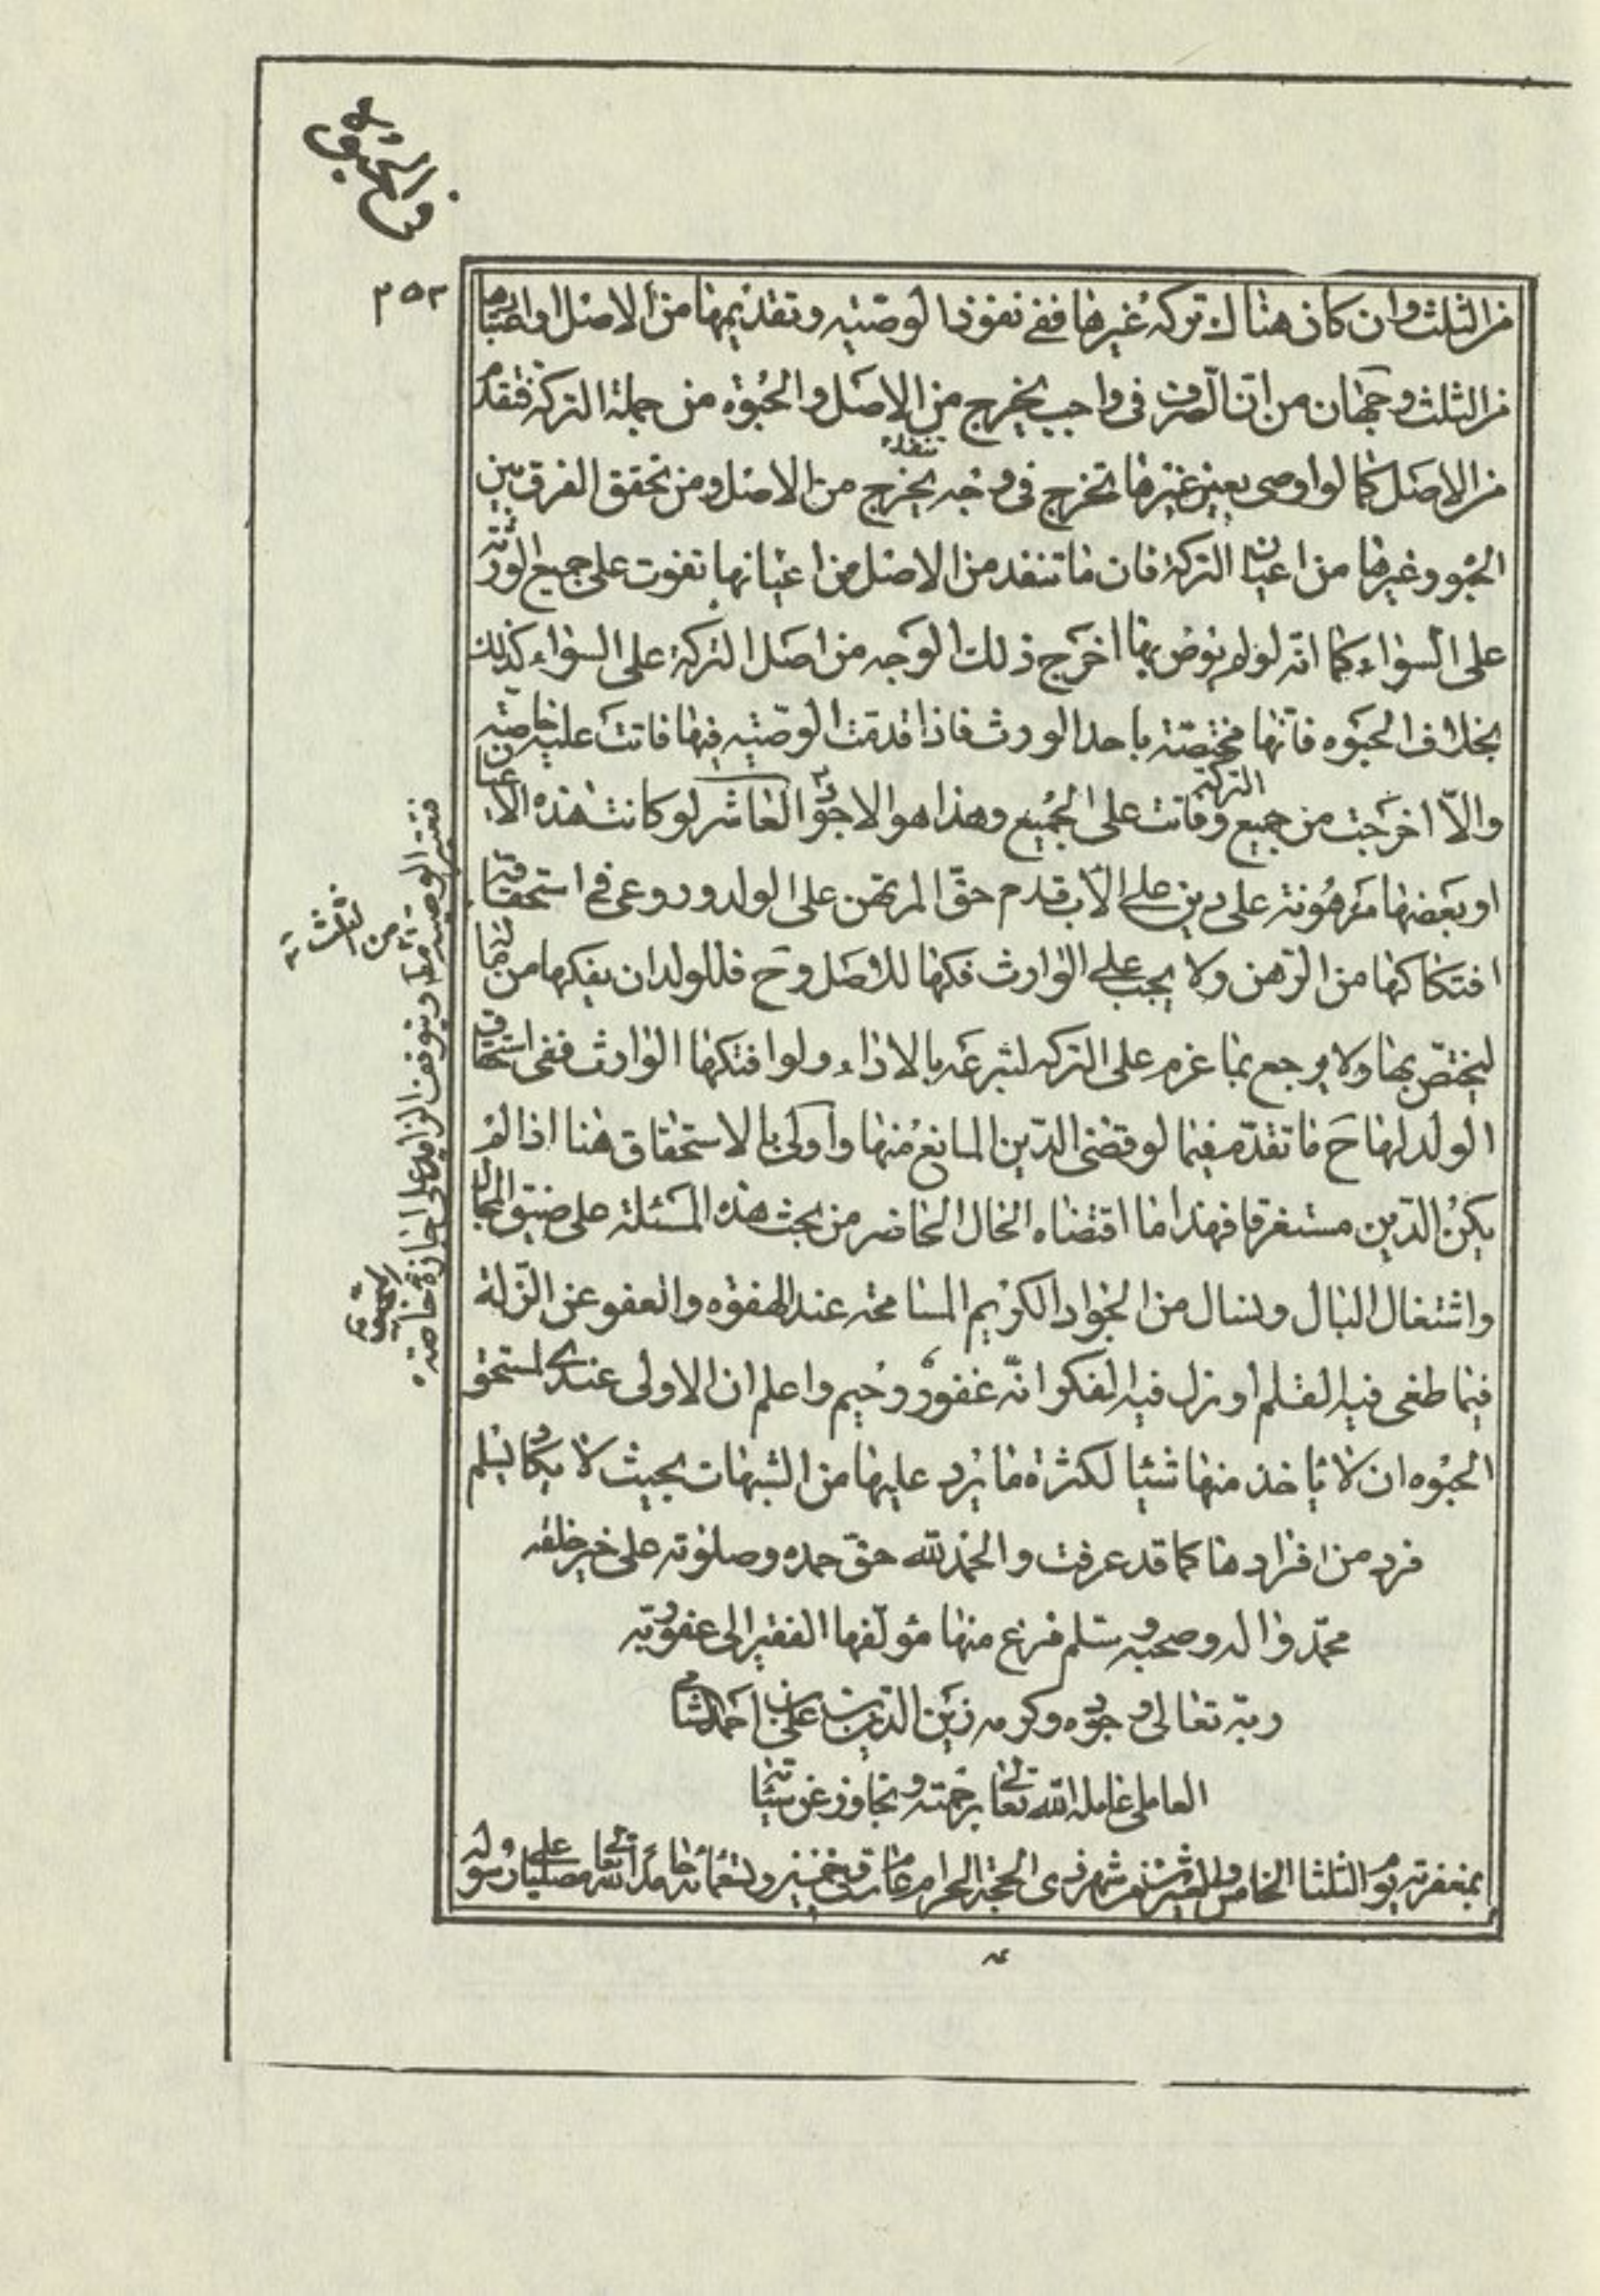 في الحبوة
٢٥٣
من الثلث وان كان هناك تركة غيرها ففى نفوذ الوصيته وتقديمها من الاصل او اعتبارها
من الثلث وجهان من ان الصرف فى واجب يخرج من الاصل والحبوة من جملة التركة فتقدم
من الاصل كما لو اوصى بعين غيرها تخرج فى وجه يخرج من الاصل ومن تحقق الفرق بين
تنفذ
الحبوة وغيرها من اعيان التركة فان ما تنفذ من الاصل من اعيانها تفوت على جميع الورثة
على السواء كما انه لو لم يوص بها اخرج ذلك الوجه من اصل التركة على السواء كذلك
بخلاف الحبوه فانها مختصة باحد الورث فاذا قدمت الوصيته فيها فاتت عليه خاصته
والا اخرجت من جميع التركة وفاتت على الجميع وهذا هو الاجود العاشر لو كانت هذه الاعيان
او بعضها مرهونة على دين على الاب قدم حق المرتهن على الولد وروعى فى استحقاقه
افتكاكها من الرهن ولا يجب على الوارث فكها للاصل وح فللولد ان يفكها من ماله
ليختص بها ولا يرجع بما غرم على التركه لتبرعه بالاداء ولو افتكها الوارث ففى استحقاق
الولد لها ح ما تقدم فيما لو قضى الدين المانع منها واولى بالاستحقاق هنا اذا لم
يكن الدين مستغرقا فهذا ما اقتضاه الحال الحاضر من بحث هذه المسئلة على ضيق المجال
واشتغال البال ونسال من الجواد الكريم المسامحة عند الهفوه والعفو عن الزلة
فيما طغى فيه القلم او نزل فيه الفكر انه غفور رحيم واعلم ان الاولى عندى لمستحق
الحبوه ان لا ياخذ منها شيئا لكثرة ما يرد عليها من الشبهات بحيث لا يكاد يسلم
فرد من افرادها كما قد عرفت والحمد لله حق حمده وصلوته على خير خلقه
محمد واله وصحبه وسلم فرغ منها مؤلفها الفقير الى عفو ربه
ربه تعالى وجوده وكرمه زين الدين بن على بن احمد الشامى
العاملى عامله الله تعالى برحمته وتجاوز عن سيئاته
بمغفرته يوم الثلثا الخامس والعشرين من شهر ذى الحجة الحرام عام ست وخمسين وتسعمائة حامدا لله تعالى مصليا على رسوله
فتعتبر الوصية منها ويتوقف الزايد على اجازة خاصة
من الثلث